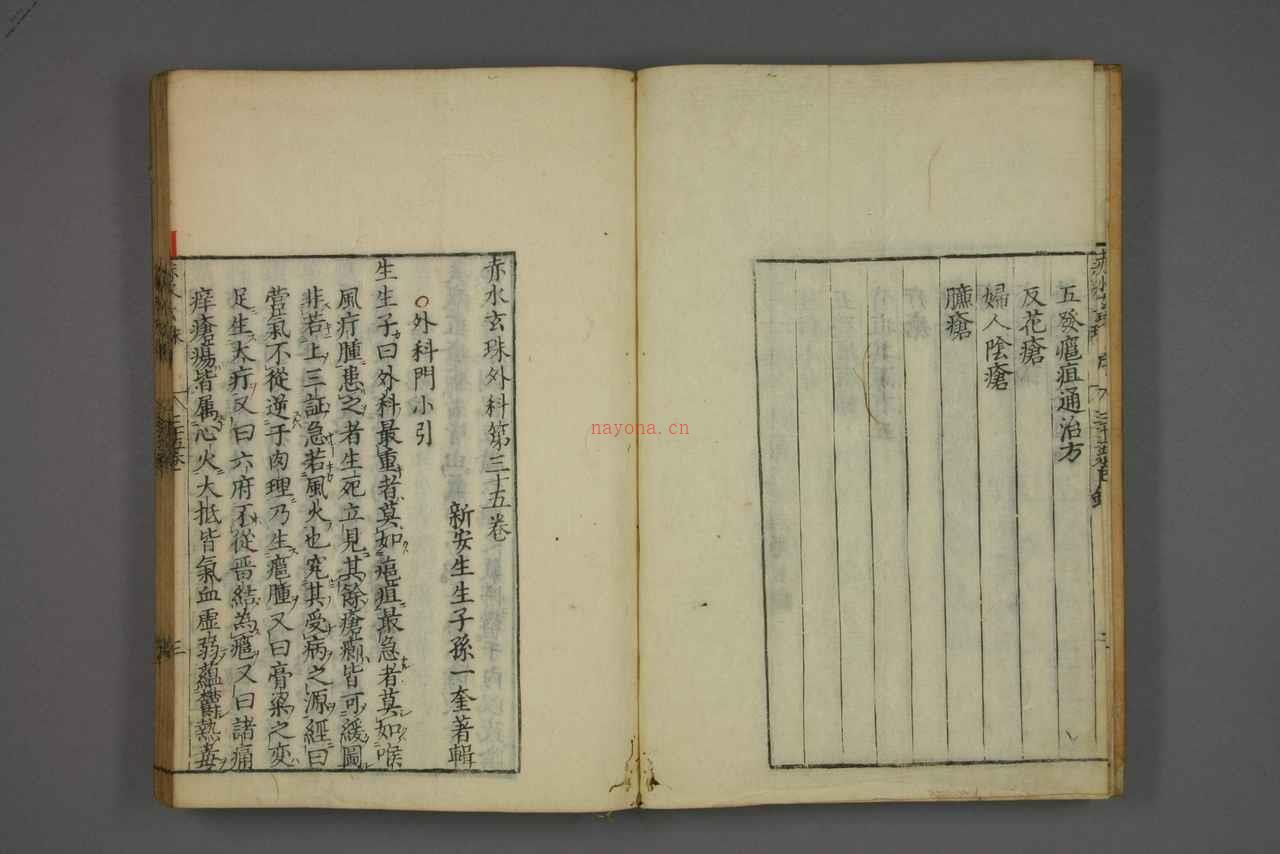 五發癰疽通治方
反花瘡
婦人陰瘡
臁瘡
赤水玄珠外科第三十五卷
新安生生子孫一奎著輯
○外科門小引
生生子曰外科最重者莫如癰疽最急者莫如喉
風疔腫患之者生死立見其餘瘡癤皆可緩圖
非若上三証急若風火也究其受病之源經曰
營氣不從逆于肉理乃生癰腫又曰膏粱之変
足生大疔又曰六府不從晋結為癰又曰諸痛
痒瘡瘍皆属心火大抵皆氣血虛弱蘊鬱熱毒
nayona.cn